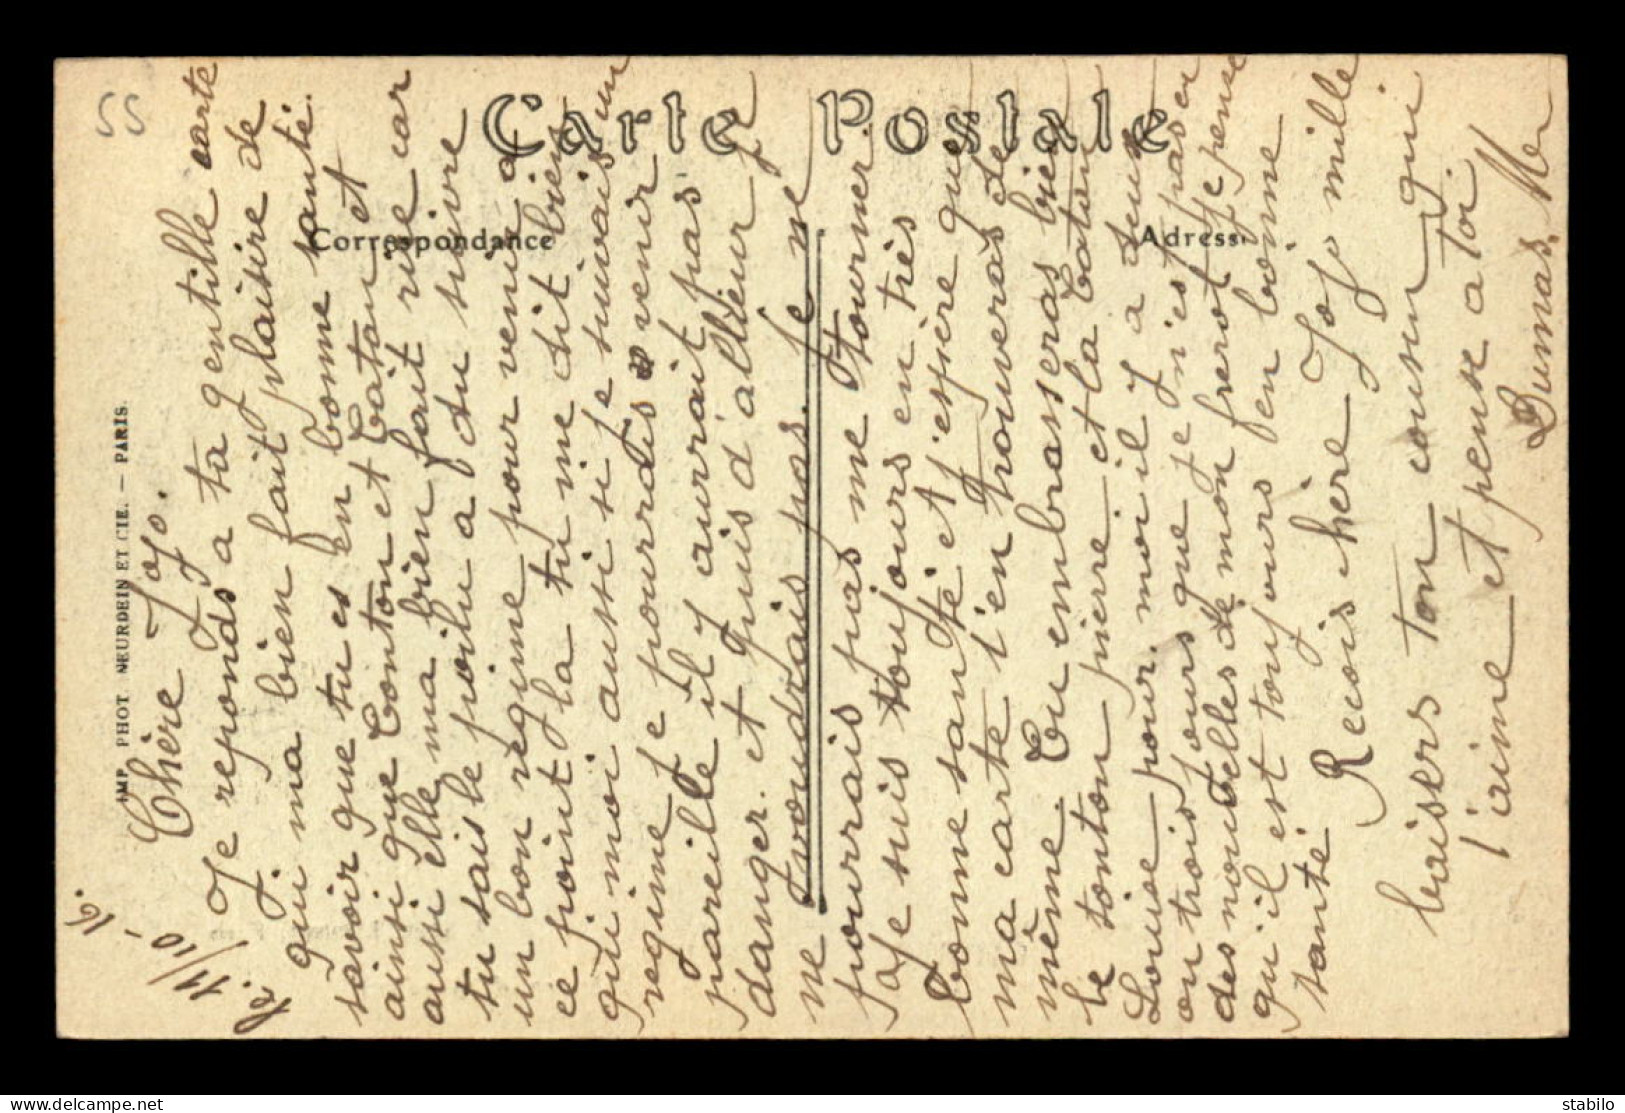 55
Carte Postale
Correspondance
Adresse
IMP. PHOT. NEURDEIN ET CIE. — PARIS.
le 11/10-16.
Chère Jojo.
Je reponds a ta gentille carte
qui ma bien fait plaisire de
savoir que tu es en bonne santé.
ainsi que Tonton et Tatan et
aussi elle ma bien fait rire car
tu sais le poilu a du suivre
un bon regime pour venir a
ce point la tu me dit bien
qui moi aussi si je suivais un
regime je pourrais venir
pareille il y aurrait pas
danger. et puis d'allieur je
ne voudrais pas. je ne
pourrais pas me tourner.
Jojo je suis toujours en très
bonne santé et j'espère que
ma carte t'en trouveras de
même. Tu embrasseras bien
le tonton pierre et la tatan
Louise pour moi il y a deux
ou trois jours que je n'est pas eu
des nouvelles de mon frerot je pense
qu'il est toujours en bonne
santé
Recois chère Jojo mille
baisers ton cousin qui
t'aime et pense a toi.
Dumas
stabilo